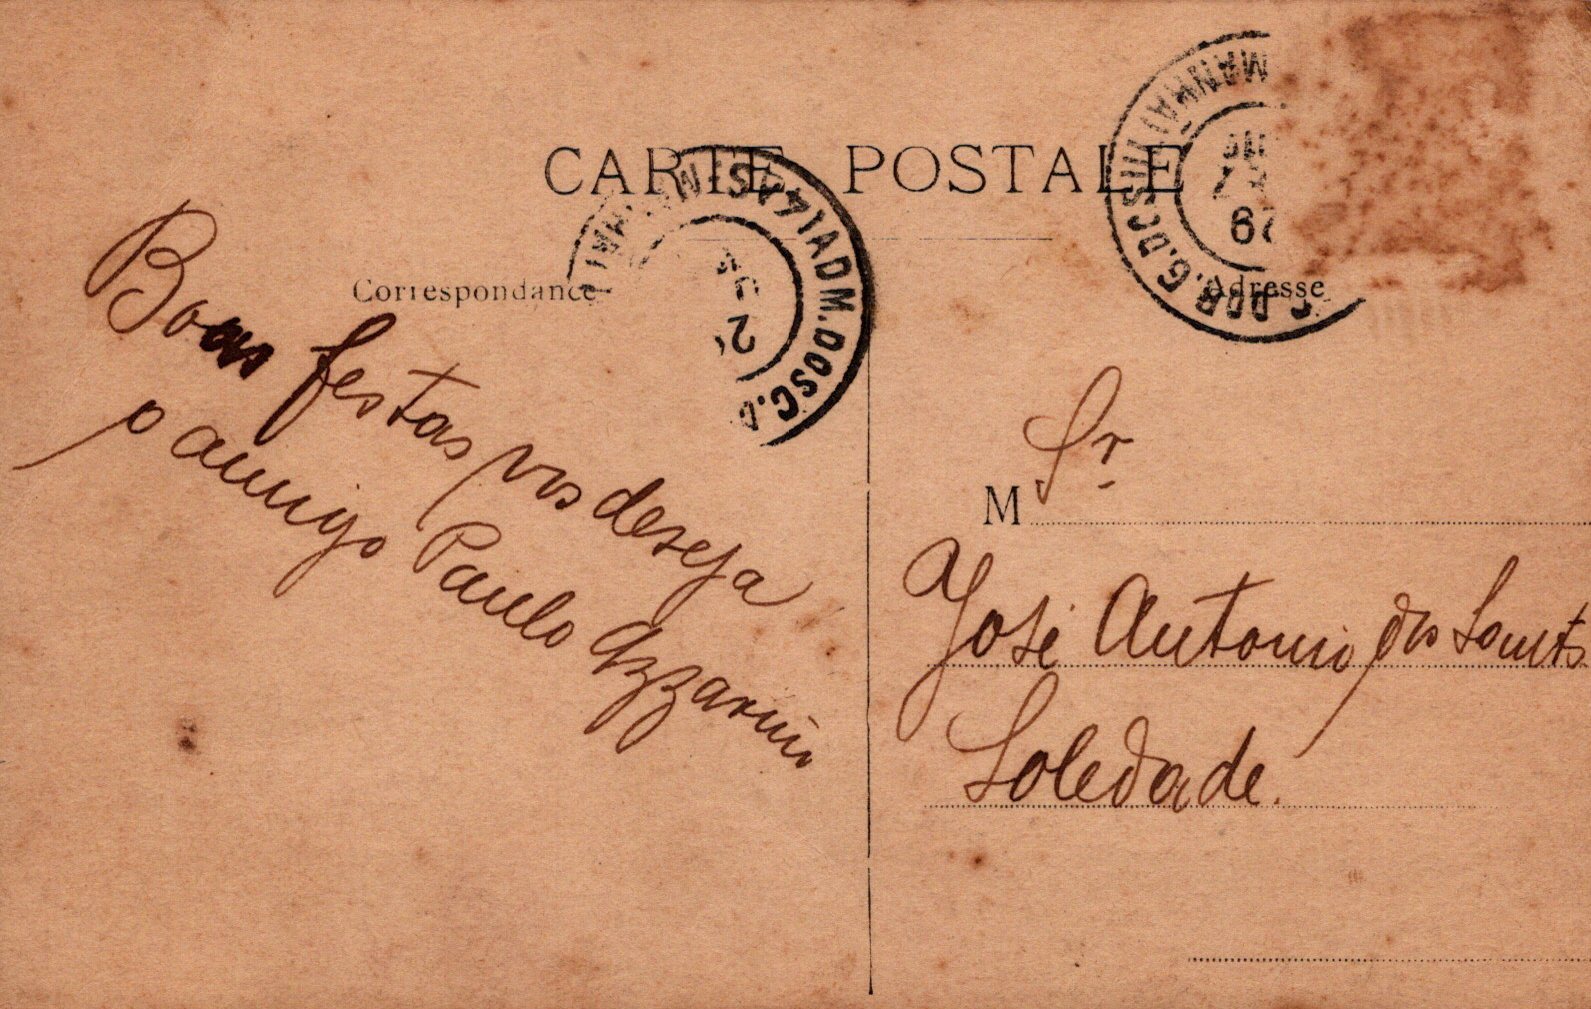 CARTE POSTALE
Correspondance
Adresse
Boas festas vos deseja
o amigo Paulo Azzarini
M Sr
José Antonio dos Santos
Soledade.
ADM. DOS C.
MANHÃ